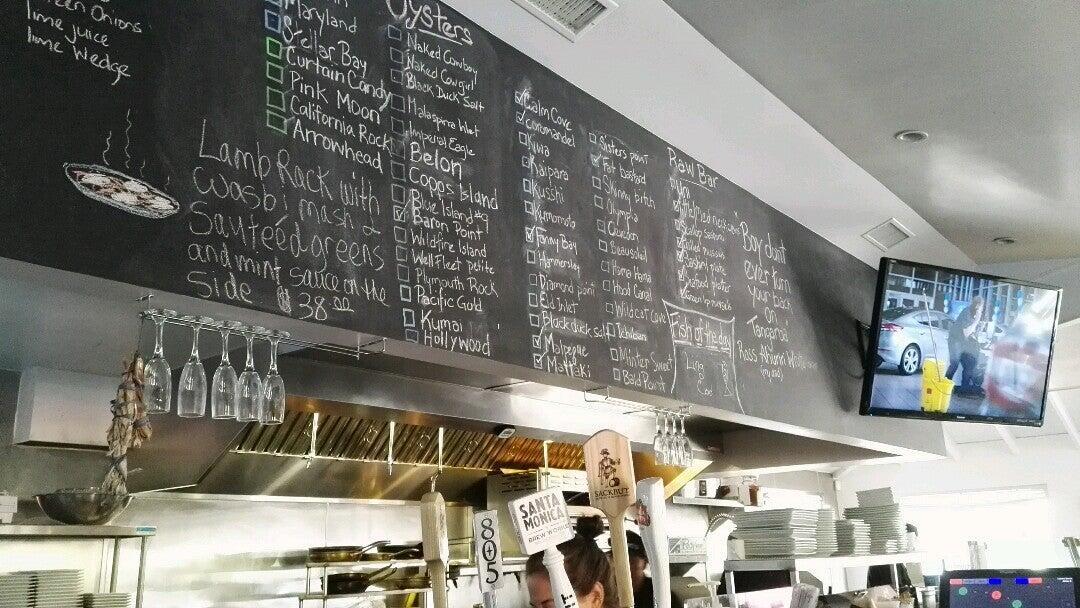 Green Onions
lime juice
lime wedge
Lamb Rack with
wasbi mash &
Sauteéd greens
and mint sauce on the
side $38.00
Maryland
Stellar Bay
Curtain Candy
Pink Moon
California Rock
Arrowhead
Oysters
Naked Cowboy
Naked Cowgirl
Black Duck Salt
Malaspina Inlet
Imperial Eagle
Belon
Copps Island
Blue Island #9
Baron Point
Wildfire Island
WellFleet Petite
Plymouth Rock
Pacific Gold
Kumai
Hollywood
Calm Cove
Coromandel
Kiwa
Kaipara
Kusshi
Kumomoto
Fanny Bay
Hammersley
Diamond Point
Eld Inlet
Black duck salt
Malpeque
Mattaki
Sisters point
Fat bastard
Skinny bitch
Olympia
Chelsea
Beausoleil
Hama Hama
Hood Canal
Wildcat Cove
Minter Sweet
Bald Point
Raw Bar
Fish of the day
Ling
Cod
"Boy don't
ever turn
your back
on
Tangaroa"
(my dad)
805
SANTA
MONICA
BREW WORKS
SACKBUT